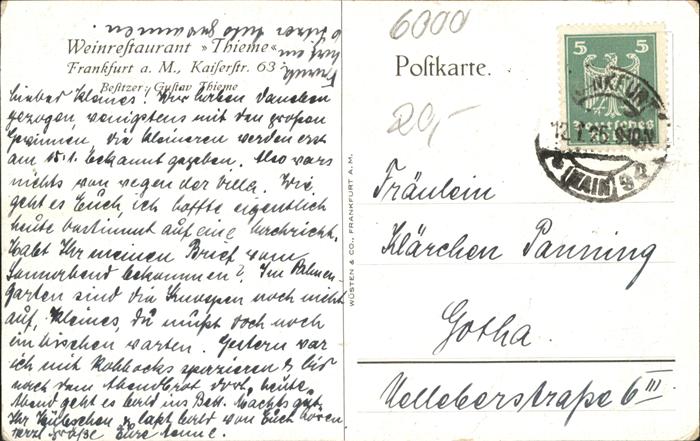 Weinrestaurant »Thieme«
Frankfurt a. M., Kaiserstr. 63
Besitzer: Gustav Thieme
Liebes Kleines! Wir haben daneben
gezogen, wenigstens mit den großen
Gewinnen, die kleineren werden erst
am 15.1. bekannt gegeben. Also wars
nichts von wegen der Villa. Wie
geht es Euch, ich hoffte eigentlich
heute bestimmt auf eine Nachricht.
Habt Ihr meinen Brief vom
Sonnabend bekommen? Im Palmen-
garten sind die Knospen noch nicht
auf, Kleines, du mußt doch noch
ein bischen warten. Gestern war
ich mit Kohhocks spazieren & bis
nach dem Abendbrot dort, heute
Abend geht es bald ins Bett. Machts gut
Ihr Hübschen & laßt bald von Euch hören
Grüße Eure Anne.
WÜSTEN & CO., FRANKFURT A. M.
6000
Postkarte.
20,-
5 5
Deutsches
FRANKFURT
12.1.26
(MAIN)
Fräulein
Klärchen Panning
Gotha.
Uelleberstraße 6 III